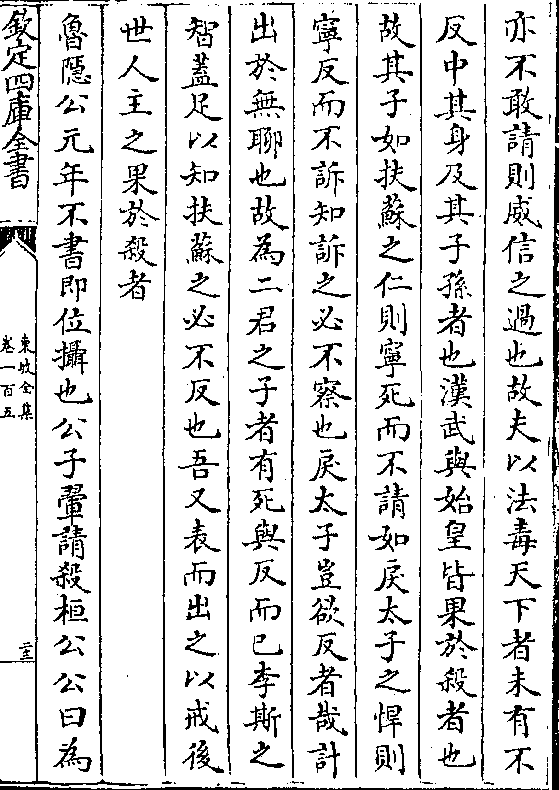 亦不敢請則威信之過也故夫以法毒天下者未有不
反中其身及其子孫者也漢武與始皇皆果於殺者也
故其子如扶蘇之仁則寧死而不請如戾太子之悍則
寧反而不訴知訴之必不察也戾太子豈欲反者哉計
出於無聊也故為二君之子者有死與反而已李斯之
智蓋足以知扶蘇之必不反也吾又表而出之以戒後
世人主之果於殺者
魯隱公元年不書即位攝也公子翬請殺桓公公曰為
欽定四庫全書
東坡全集
卷一百五
二十三